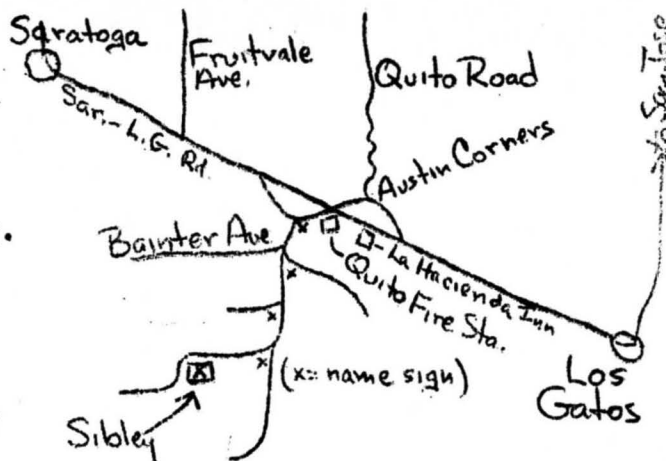 Saratoga
Fruitvale
Ave.
Quito Road
Sar.-L.G. Rd
Austin Corners
Bainter Ave
La Hacienda Inn
Quito Fire Sta.
x
x
x
x
(x= name sign)
x
Sibley
Los
Gatos